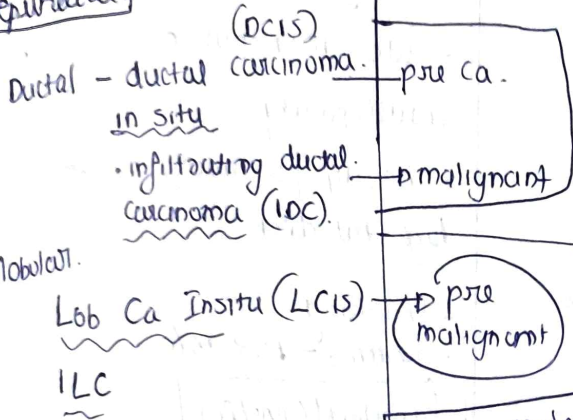 (DCIS)
Ductal - ductal carcinoma. pre ca.
in situ
• infiltrating ductal. malignant
carcinoma (IDC).
lobular.
Lob Ca Insitu (LCIS) → pre
malignant
ILC